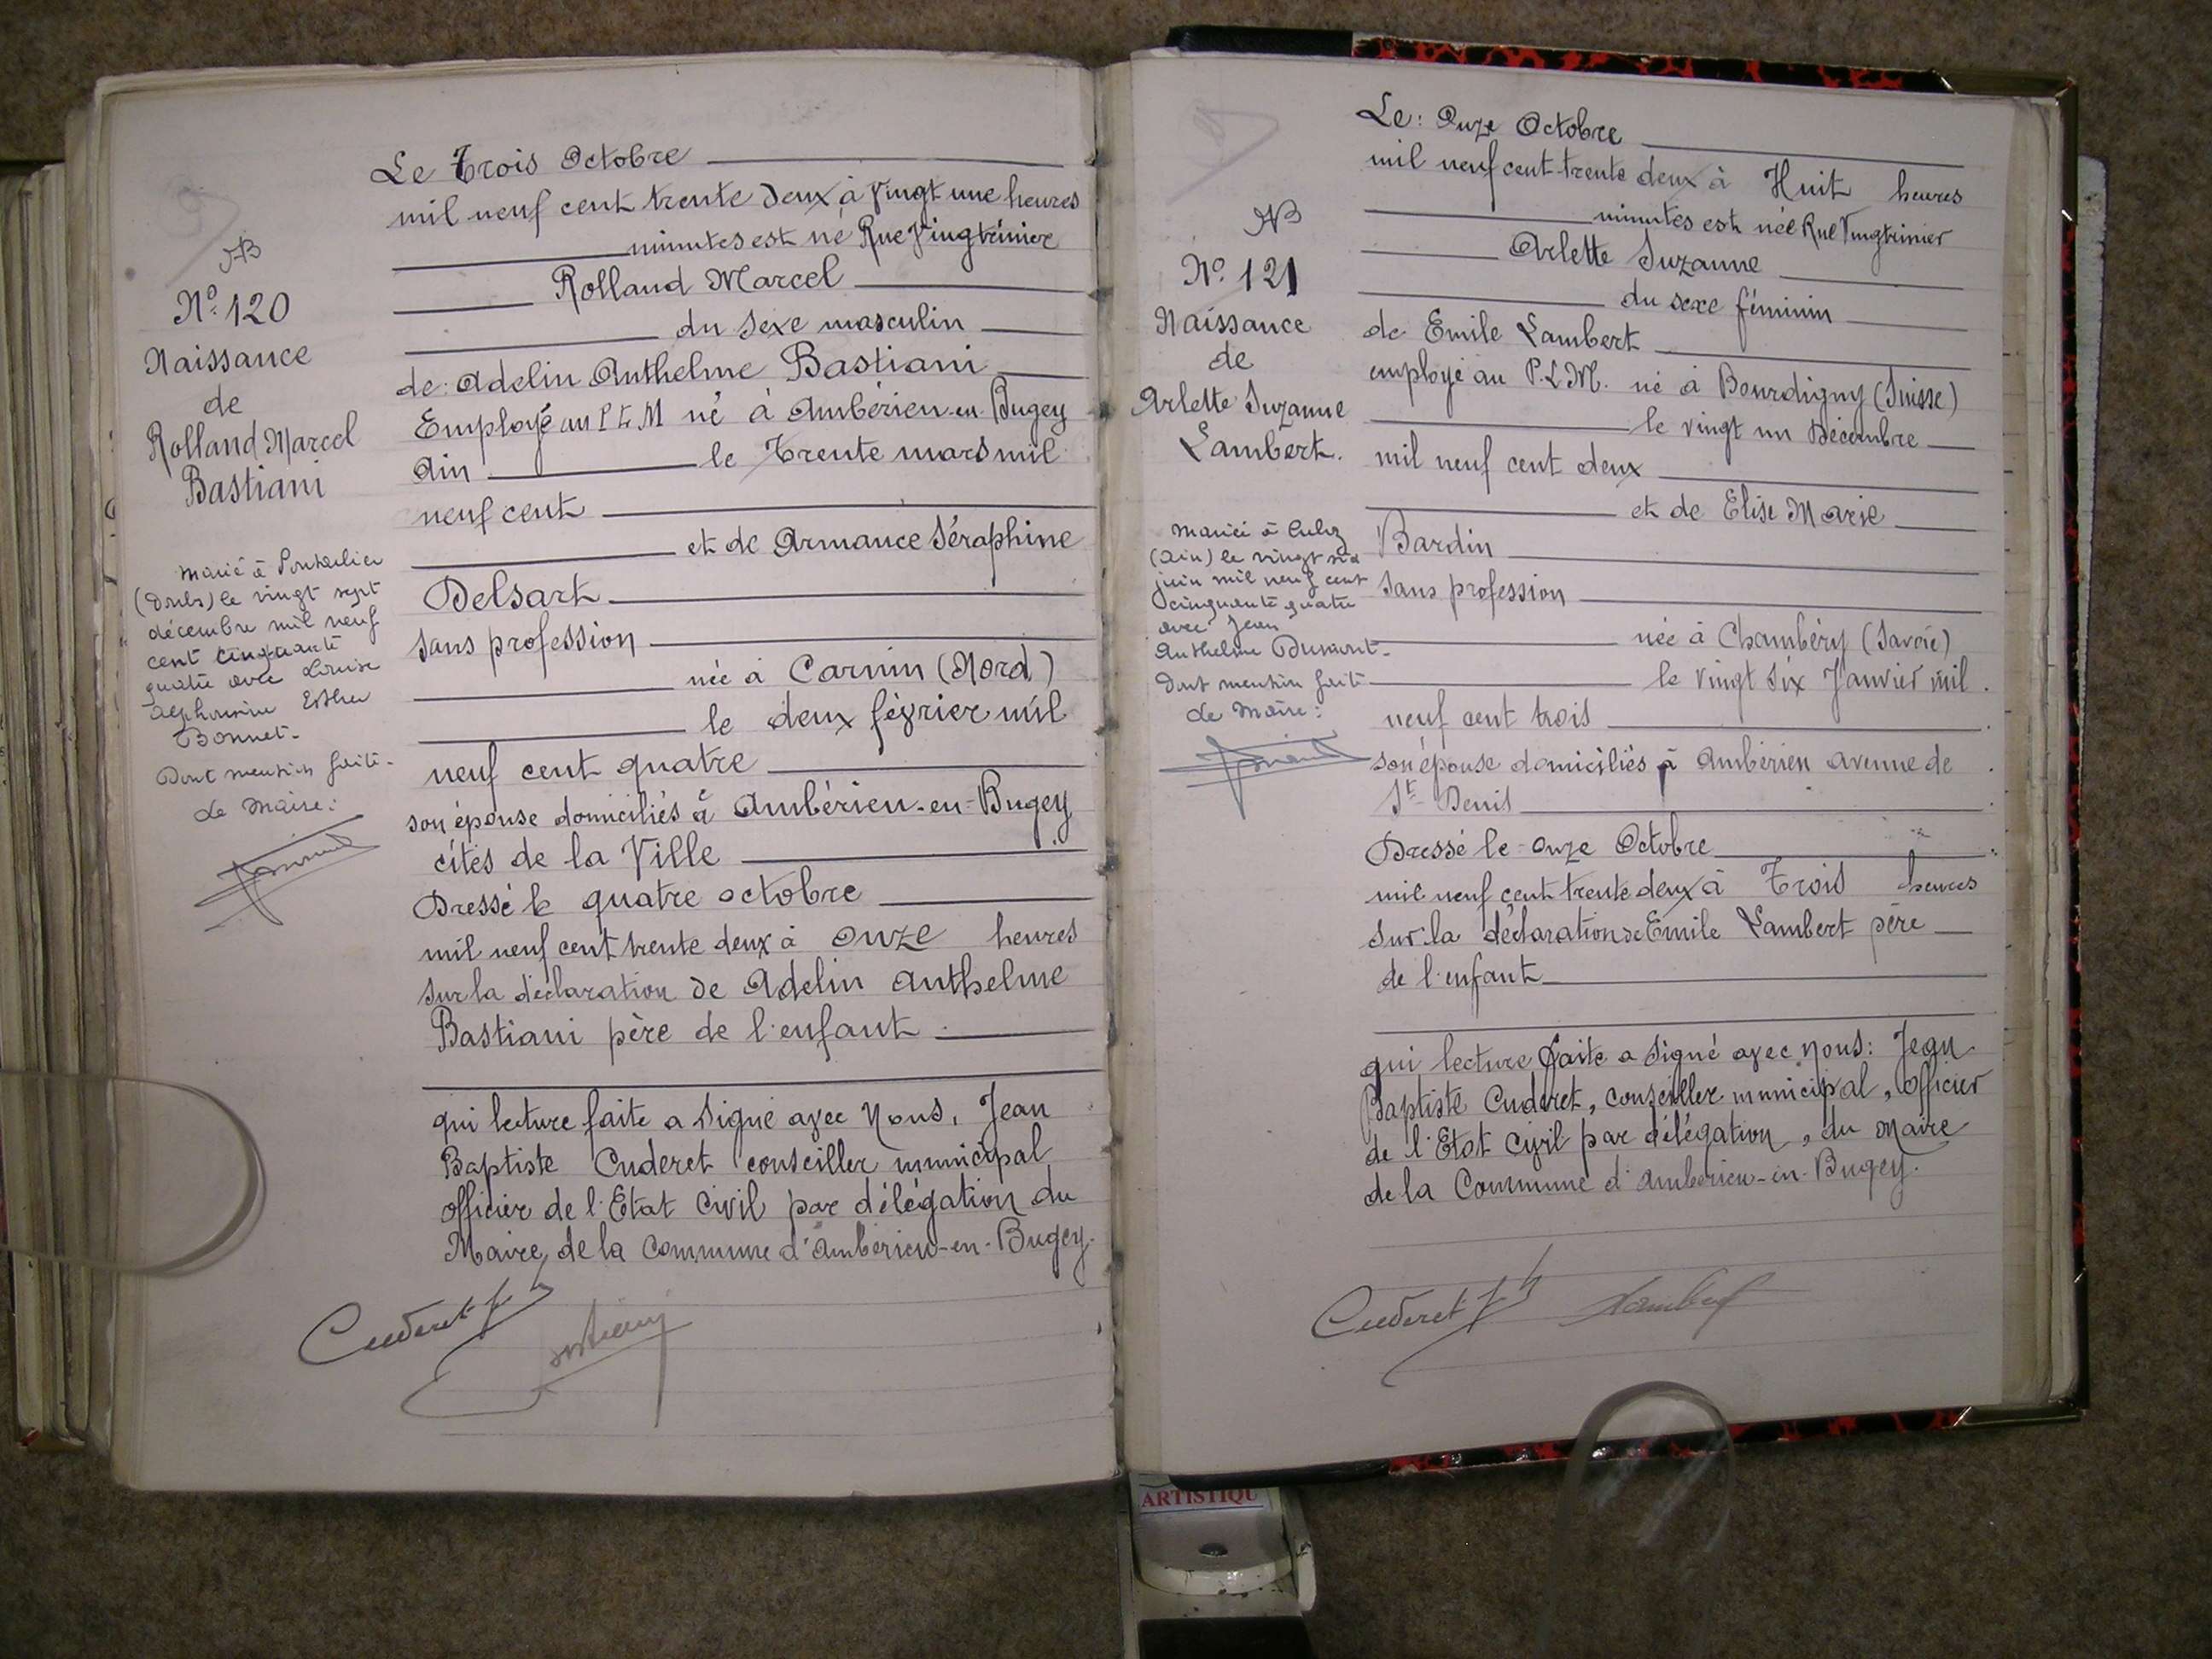 NB
N° 120
Naissance
de
Rolland Marcel
Bastiani
marié à Pontarlier
(Doubs) le vingt sept
décembre mil neuf
cent cinquante
quatre avec Louise
Alphonsine Esther
Bonnet.
Dont mention faite.
Le Maire:
Le Trois Octobre
mil neuf cent trente deux à Vingt une heures
minutes est né Rue Vingtrinier
Rolland Marcel
du sexe masculin
de: Adelin Anthelme Bastiani
Employé au P L M né à Ambérieu-en-Bugey
Ain le Trente mars mil
neuf cent
et de Armance Séraphine
Delsart
sans profession
née à Carnin (Nord)
le deux février mil
neuf cent quatre
son épouse domiciliés à Ambérieu-en-Bugey
cités de la Ville
Dressé le quatre octobre
mil neuf cent trente deux à onze heures
sur la déclaration de Adelin Anthelme
Bastiani père de l'enfant
qui lecture faite a signé avec Nous, Jean
Baptiste Cuderet conseiller municipal
officier de l'Etat Civil par délégation du
Maire, de la Commune d'Ambérieu-en-Bugey.
Cuderet
NB
N° 121
Naissance
de
Arlette Suzanne
Lambert.
mariée à Culoz
(Ain) le vingt six
juin mil neuf cent
cinquante quatre
avec Jean
Anthelme Dumont.
Dont mention faite
Le Maire:
Le: Onze Octobre
mil neuf cent trente deux à Huit heures
minutes est née Rue Vingtrinier
Arlette Suzanne
du sexe féminin
de Emile Lambert
employé au P.L.M. né à Bourdigny (Suisse)
le vingt un Décembre
mil neuf cent deux
et de Elise Marie
Bardin
sans profession
née à Chambéry (Savoie)
le vingt six Janvier mil
neuf cent trois
son épouse domiciliés à Ambérieu avenue de
St Denis
Dressé le onze Octobre
mil neuf cent trente deux à Trois heures
sur la déclaration de Emile Lambert père
de l'enfant
qui lecture faite a signé avec nous: Jean
Baptiste Cuderet, conseiller municipal, officier
de l'Etat Civil par délégation, du Maire
de la Commune d'Ambérieu-en-Bugey.
Cuderet Lambert
ARTISTIQU